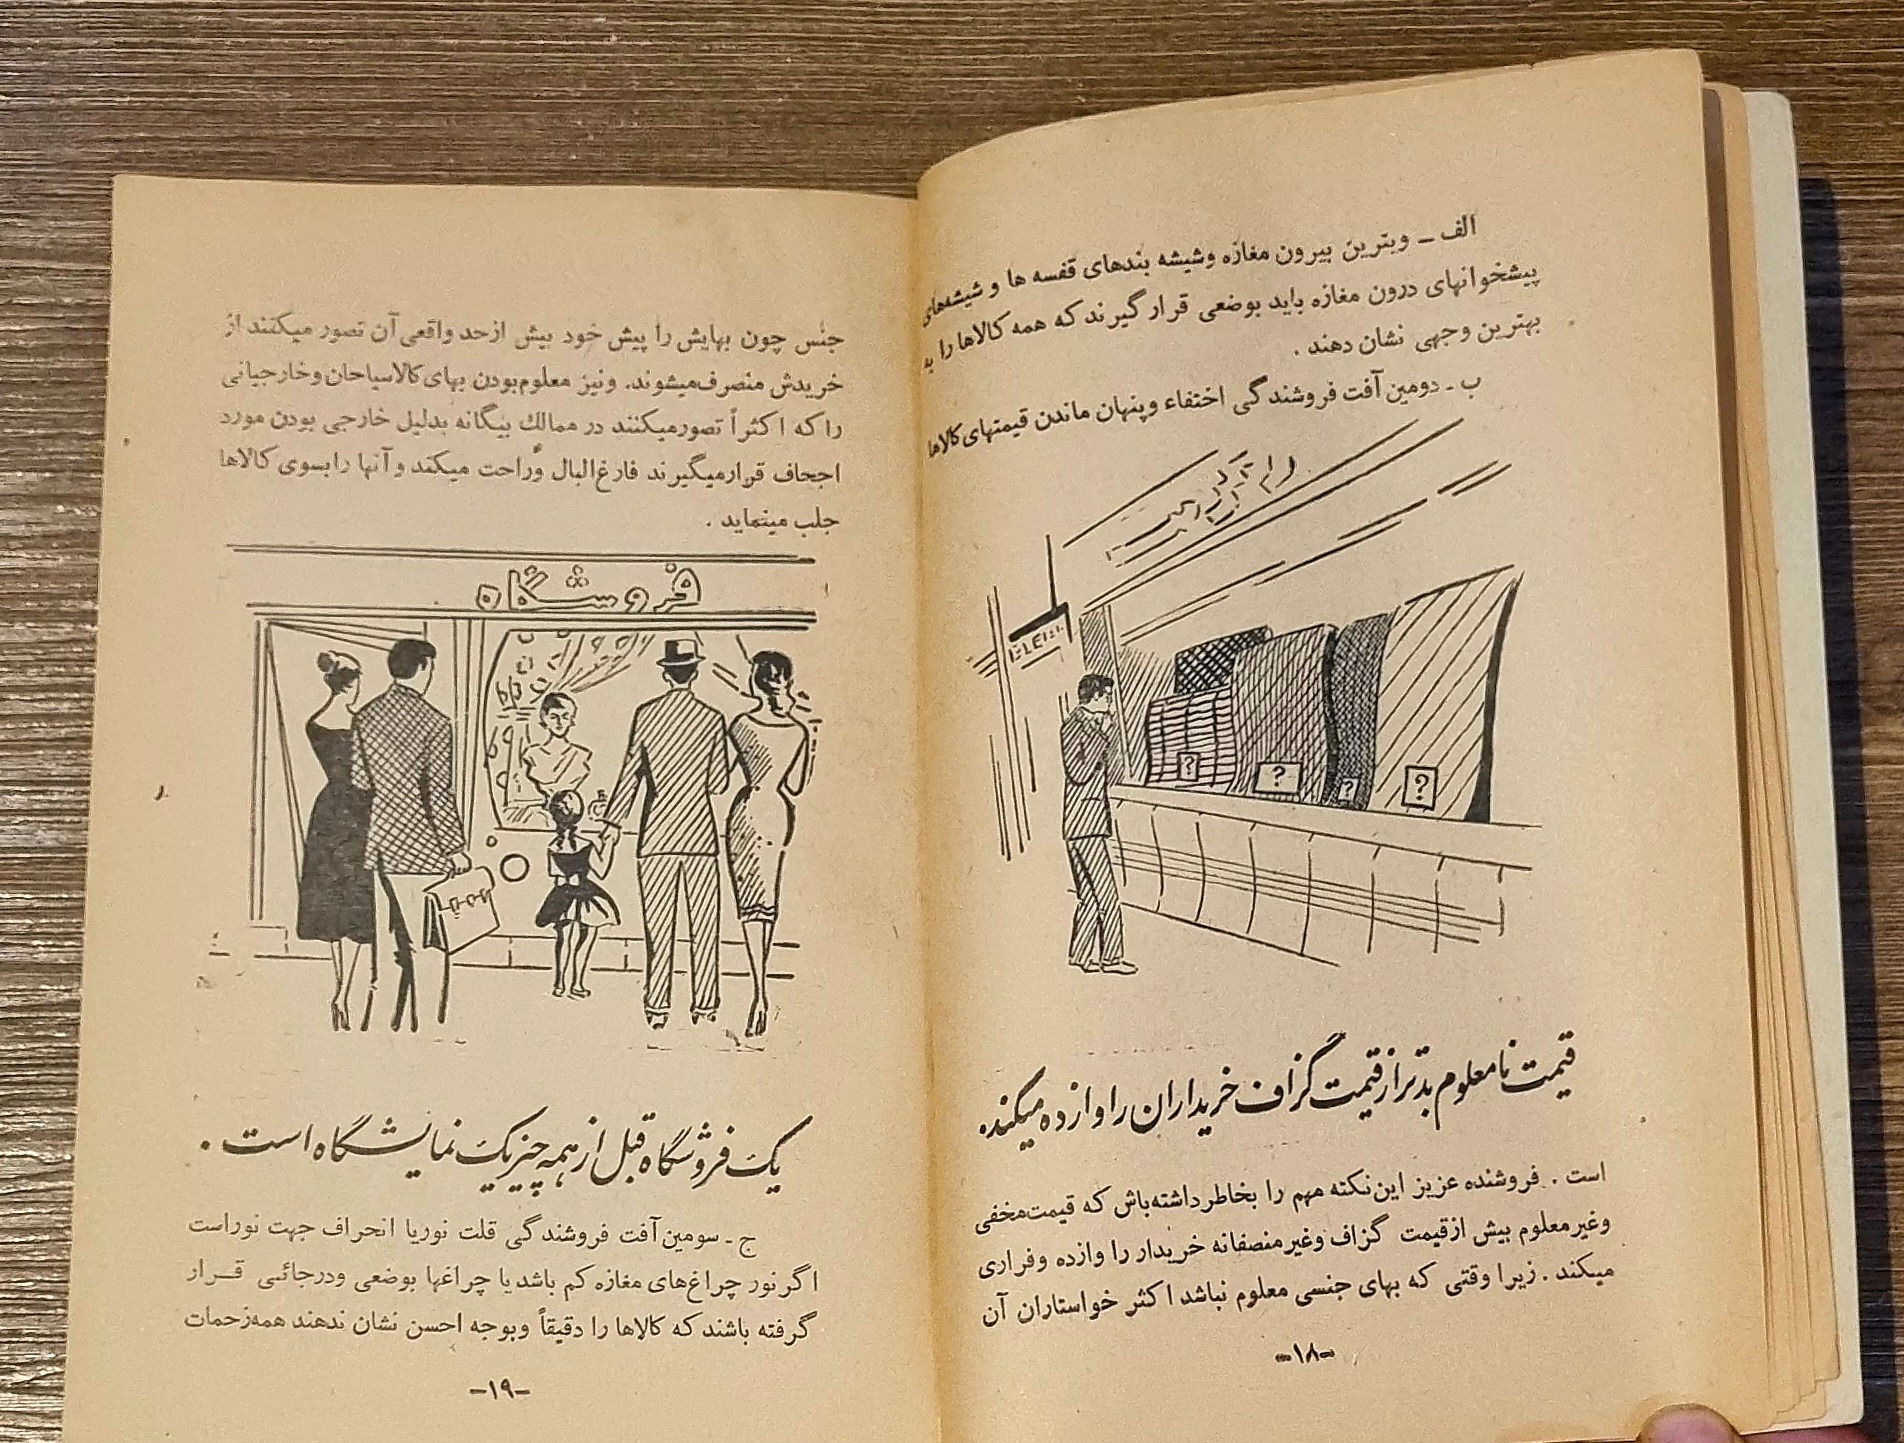 الف ـ ویترین بیرون مغازه وشیشه بندهای قفسه ها و شیشه‌های
پیشخوانهای درون مغازه باید بوضعی قرار گیرند که همه کالاها را به
بهترین وجهی نشان دهند .
ب ـ دومین آفت فروشندگی اختفاء وپنهان ماندن قیمتهای کالاها
?
?
?
?
قیمت نامعلوم بدتر از قیمت گزاف خریداران را وازده میکند.
است . فروشنده عزیز این نکته مهم را بخاطر داشته‌باش که قیمت‌مخفی
وغیر معلوم بیش ازقیمت گزاف وغیر منصفانه خریدار را وازده وفراری
میکند . زیرا وقتی که بهای جنسی معلوم نباشد اکثر خواستاران آن
-۱۸-
جنس چون بهایش را پیش خود بیش ازحد واقعی آن تصور میکنند از
خریدش منصرف میشوند. ونیز معلوم‌بودن بهای کالاسیاحان وخارجیانی
را که اکثراً تصورمیکنند در ممالك بیگانه بدلیل خارجی بودن مورد
اجحاف قرارمیگیرند فارغ‌البال وراحت میکند وآنها رابسوی کالاها
جلب مینماید .
فروشگاه
یک فروشگاه قبل از همه چیز یک نمایشگاه است .
ج ـ سومین آفت فروشندگی قلت نوریا انحراف جهت نوراست
اگر نور چراغ‌های مغازه کم باشد یا چراغها بوضعی ودرجائی قرار
گرفته باشند که کالاها را دقیقاً وبوجه احسن نشان ندهند همه‌زحمات
-۱۹-